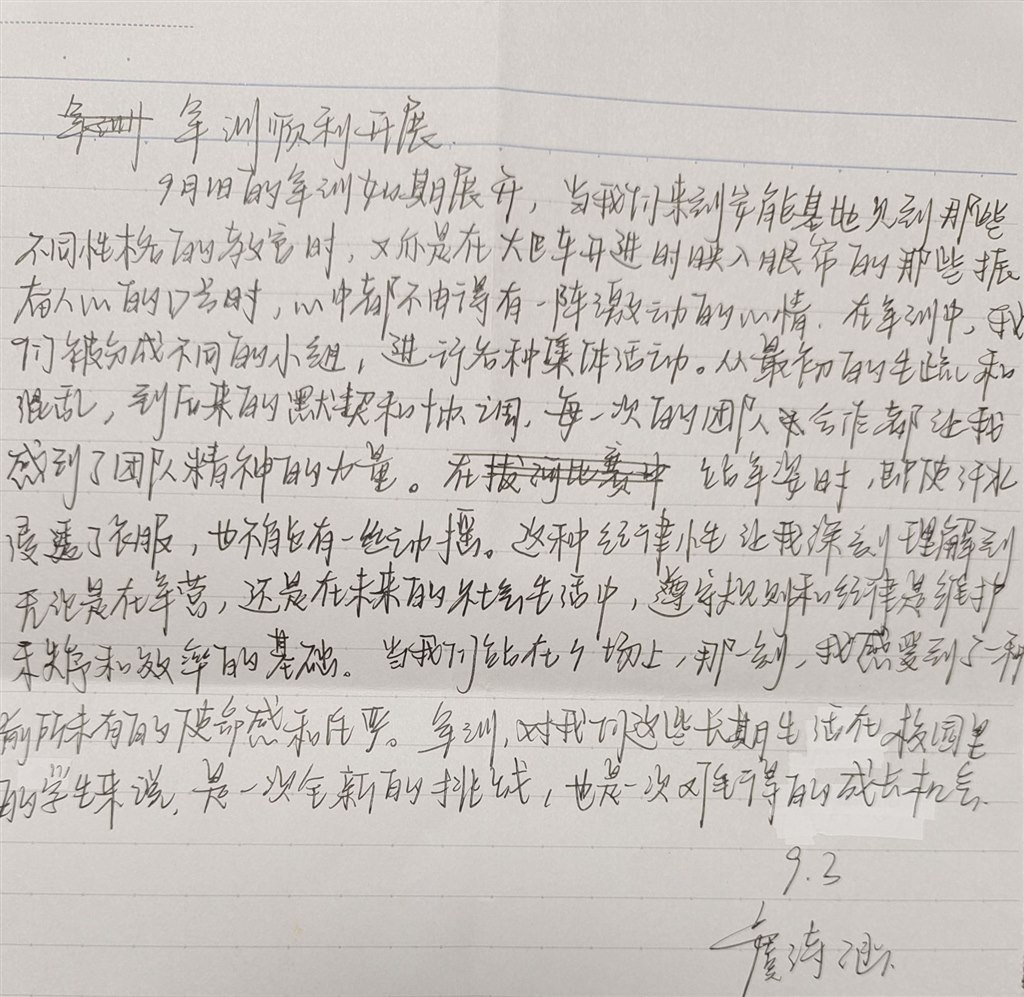 军训 军训顺利开展.
9月1日的军训如期展开，当我们来到岁能基地见到那些
不同性格的教官时，又亦是在大巴车开进时映入眼帘的那些振
奋人心的口号时，心中都不由得有一阵激动的心情. 在军训中，我
们被分成不同的小组，进行各种集体活动。从最初的生疏和
混乱，到后来的默契和协调，每一次的团队合作都让我
感到了团队精神的力量。在拔河比赛中 站军姿时，即使汗水
浸透了衣服，也不能有一丝动摇。这种纪律性让我深刻理解到
无论是在军营，还是在未来的社会生活中，遵守规则和纪律是维护
秩序和效率的基础。当我们站在广场上，那一刻，我感受到了一种
前所未有的使命感和庄严。军训，对我们这些长期生活在校园里
的学生来说，是一次全新的挑战，也是一次难得的成长机会.
9.3
詹涛涵